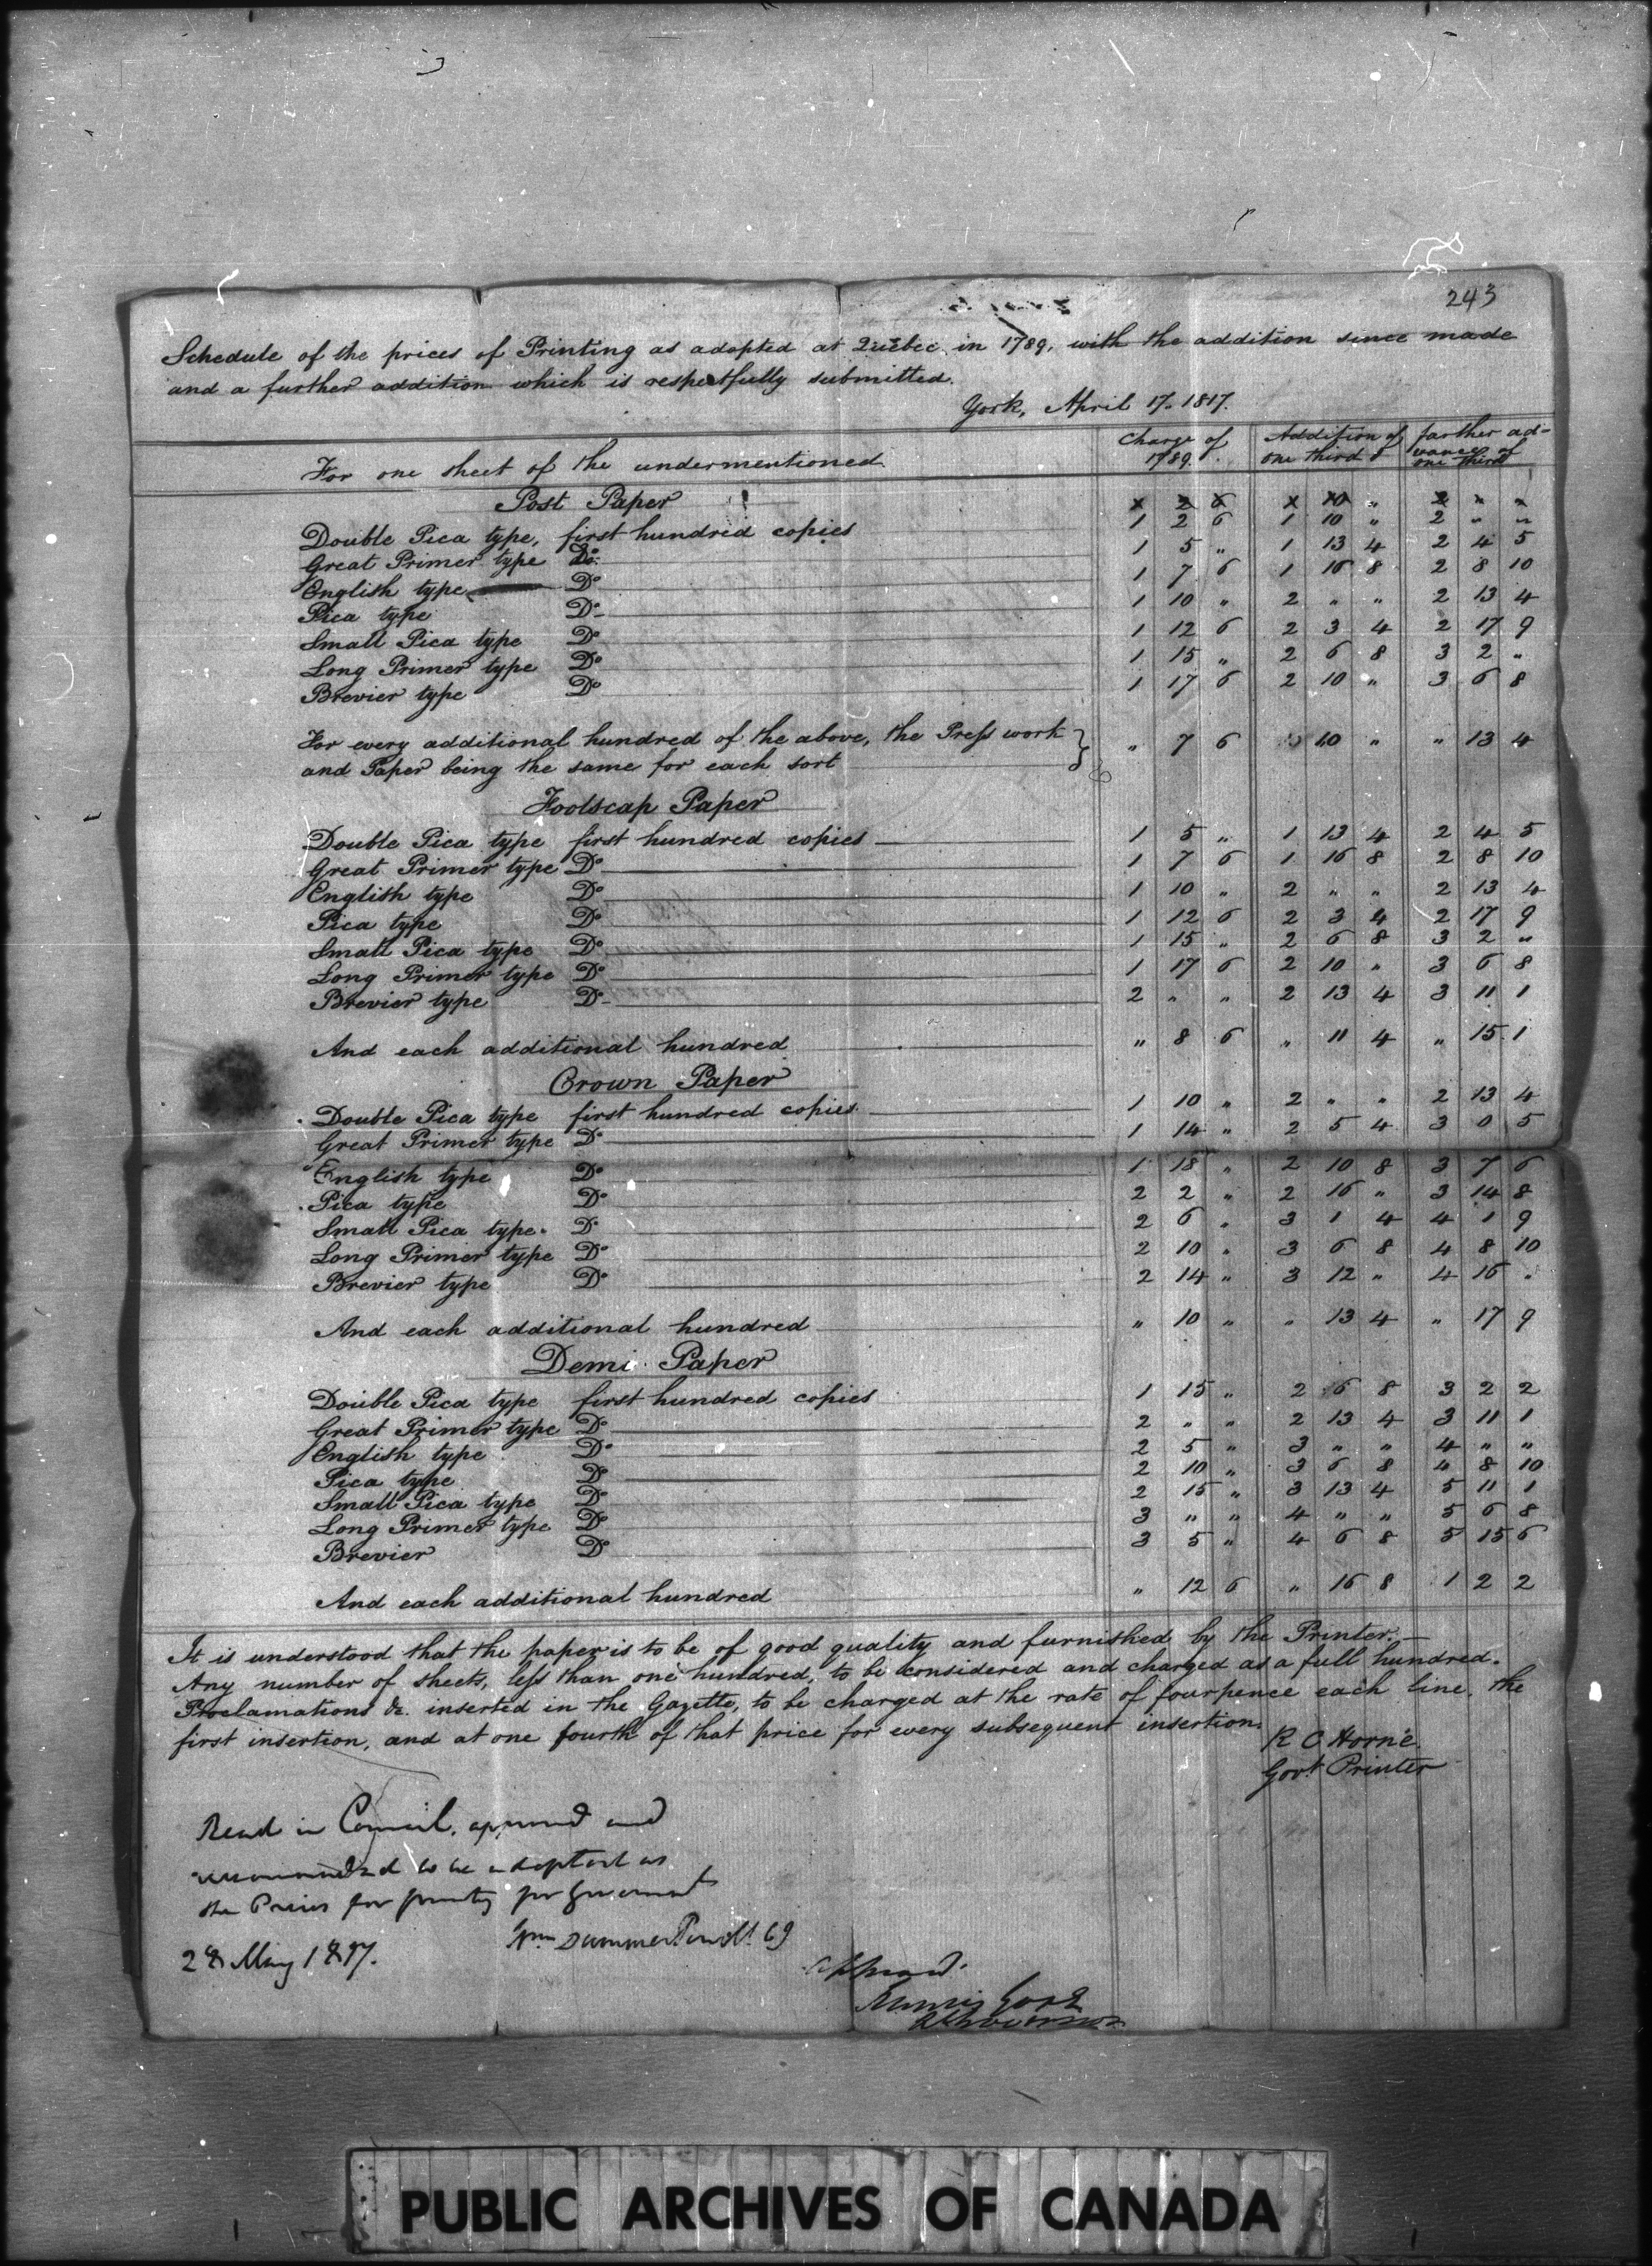 243
Schedule of the prices of Printing as adopted at Quebec in 1789, with the addition since made
and a further addition which is respectfully submitted.
York, April 17. 1817.
For one sheet of the undermentioned Charge of 1789. Addition of one third farther ad-vance of one third
Post Paper x 2 6 x 10 " 2 " "
Double Pica type, first hundred copies 1 2 6 1 10 " 2 " "
Great Primer type Do. 1 5 " 1 13 4 2 4 5
English type Do 1 7 6 1 16 8 2 8 10
Pica type Do 1 10 " 2 " " 2 13 4
Small Pica type Do 1 12 6 2 3 4 2 17 9
Long Primer type Do 1 15 " 2 6 8 3 2 "
Brevier type Do 1 17 6 2 10 " 3 6 8
For every additional hundred of the above, the Press work
and Paper being the same for each sort " 7 6 " 10 " " 13 4
Foolscap Paper
Double Pica type first hundred copies 1 5 " 1 13 4 2 4 5
Great Primer type Do 1 7 6 1 16 8 2 8 10
English type Do 1 10 " 2 " " 2 13 4
Pica type Do 1 12 6 2 3 4 2 17 9
Small Pica type Do 1 15 " 2 6 8 3 2 "
Long Primer type Do 1 17 6 2 10 " 3 6 8
Brevier type Do 2 " " 2 13 4 3 11 1
And each additional hundred " 8 6 " 11 4 " 15 1
Crown Paper
Double Pica type first hundred copies 1 10 " 2 " " 2 13 4
Great Primer type Do 1 14 " 2 5 4 3 0 5
English type Do 1 18 " 2 10 8 3 7 6
Pica type Do 2 2 " 2 16 " 3 14 8
Small Pica type Do 2 6 " 3 1 4 4 1 9
Long Primer type Do 2 10 " 3 6 8 4 8 10
Brevier type Do 2 14 " 3 12 " 4 16 "
And each additional hundred " 10 " " 13 4 " 17 9
Demi Paper
Double Pica type first hundred copies 1 15 " 2 6 8 3 2 2
Great Primer type Do 2 " " 2 13 4 3 11 1
English type Do 2 5 " 3 " " 4 " "
Pica type Do 2 10 " 3 6 8 4 8 10
Small Pica type Do 2 15 " 3 13 4 5 11 1
Long Primer type Do 3 " " 4 " " 5 6 8
Brevier Do 3 5 " 4 6 8 5 15 6
And each additional hundred " 12 6 " 16 8 1 2 2
It is understood that the paper is to be of good quality and furnished by the Printer.—
Any number of sheets, less than one hundred, to be considered and charged as a full hundred.
Proclamations &c. inserted in the Gazette, to be charged at the rate of fourpence each line, the
first insertion, and at one fourth of that price for every subsequent insertion.
R C Horne
Govt. Printer
Read in Council, approved and
recommended to be adopted as
the Prices for printing for Government
Wm Dummer Powell
28 May 1817.
approved.
Francis Gore
PUBLIC ARCHIVES OF CANADA